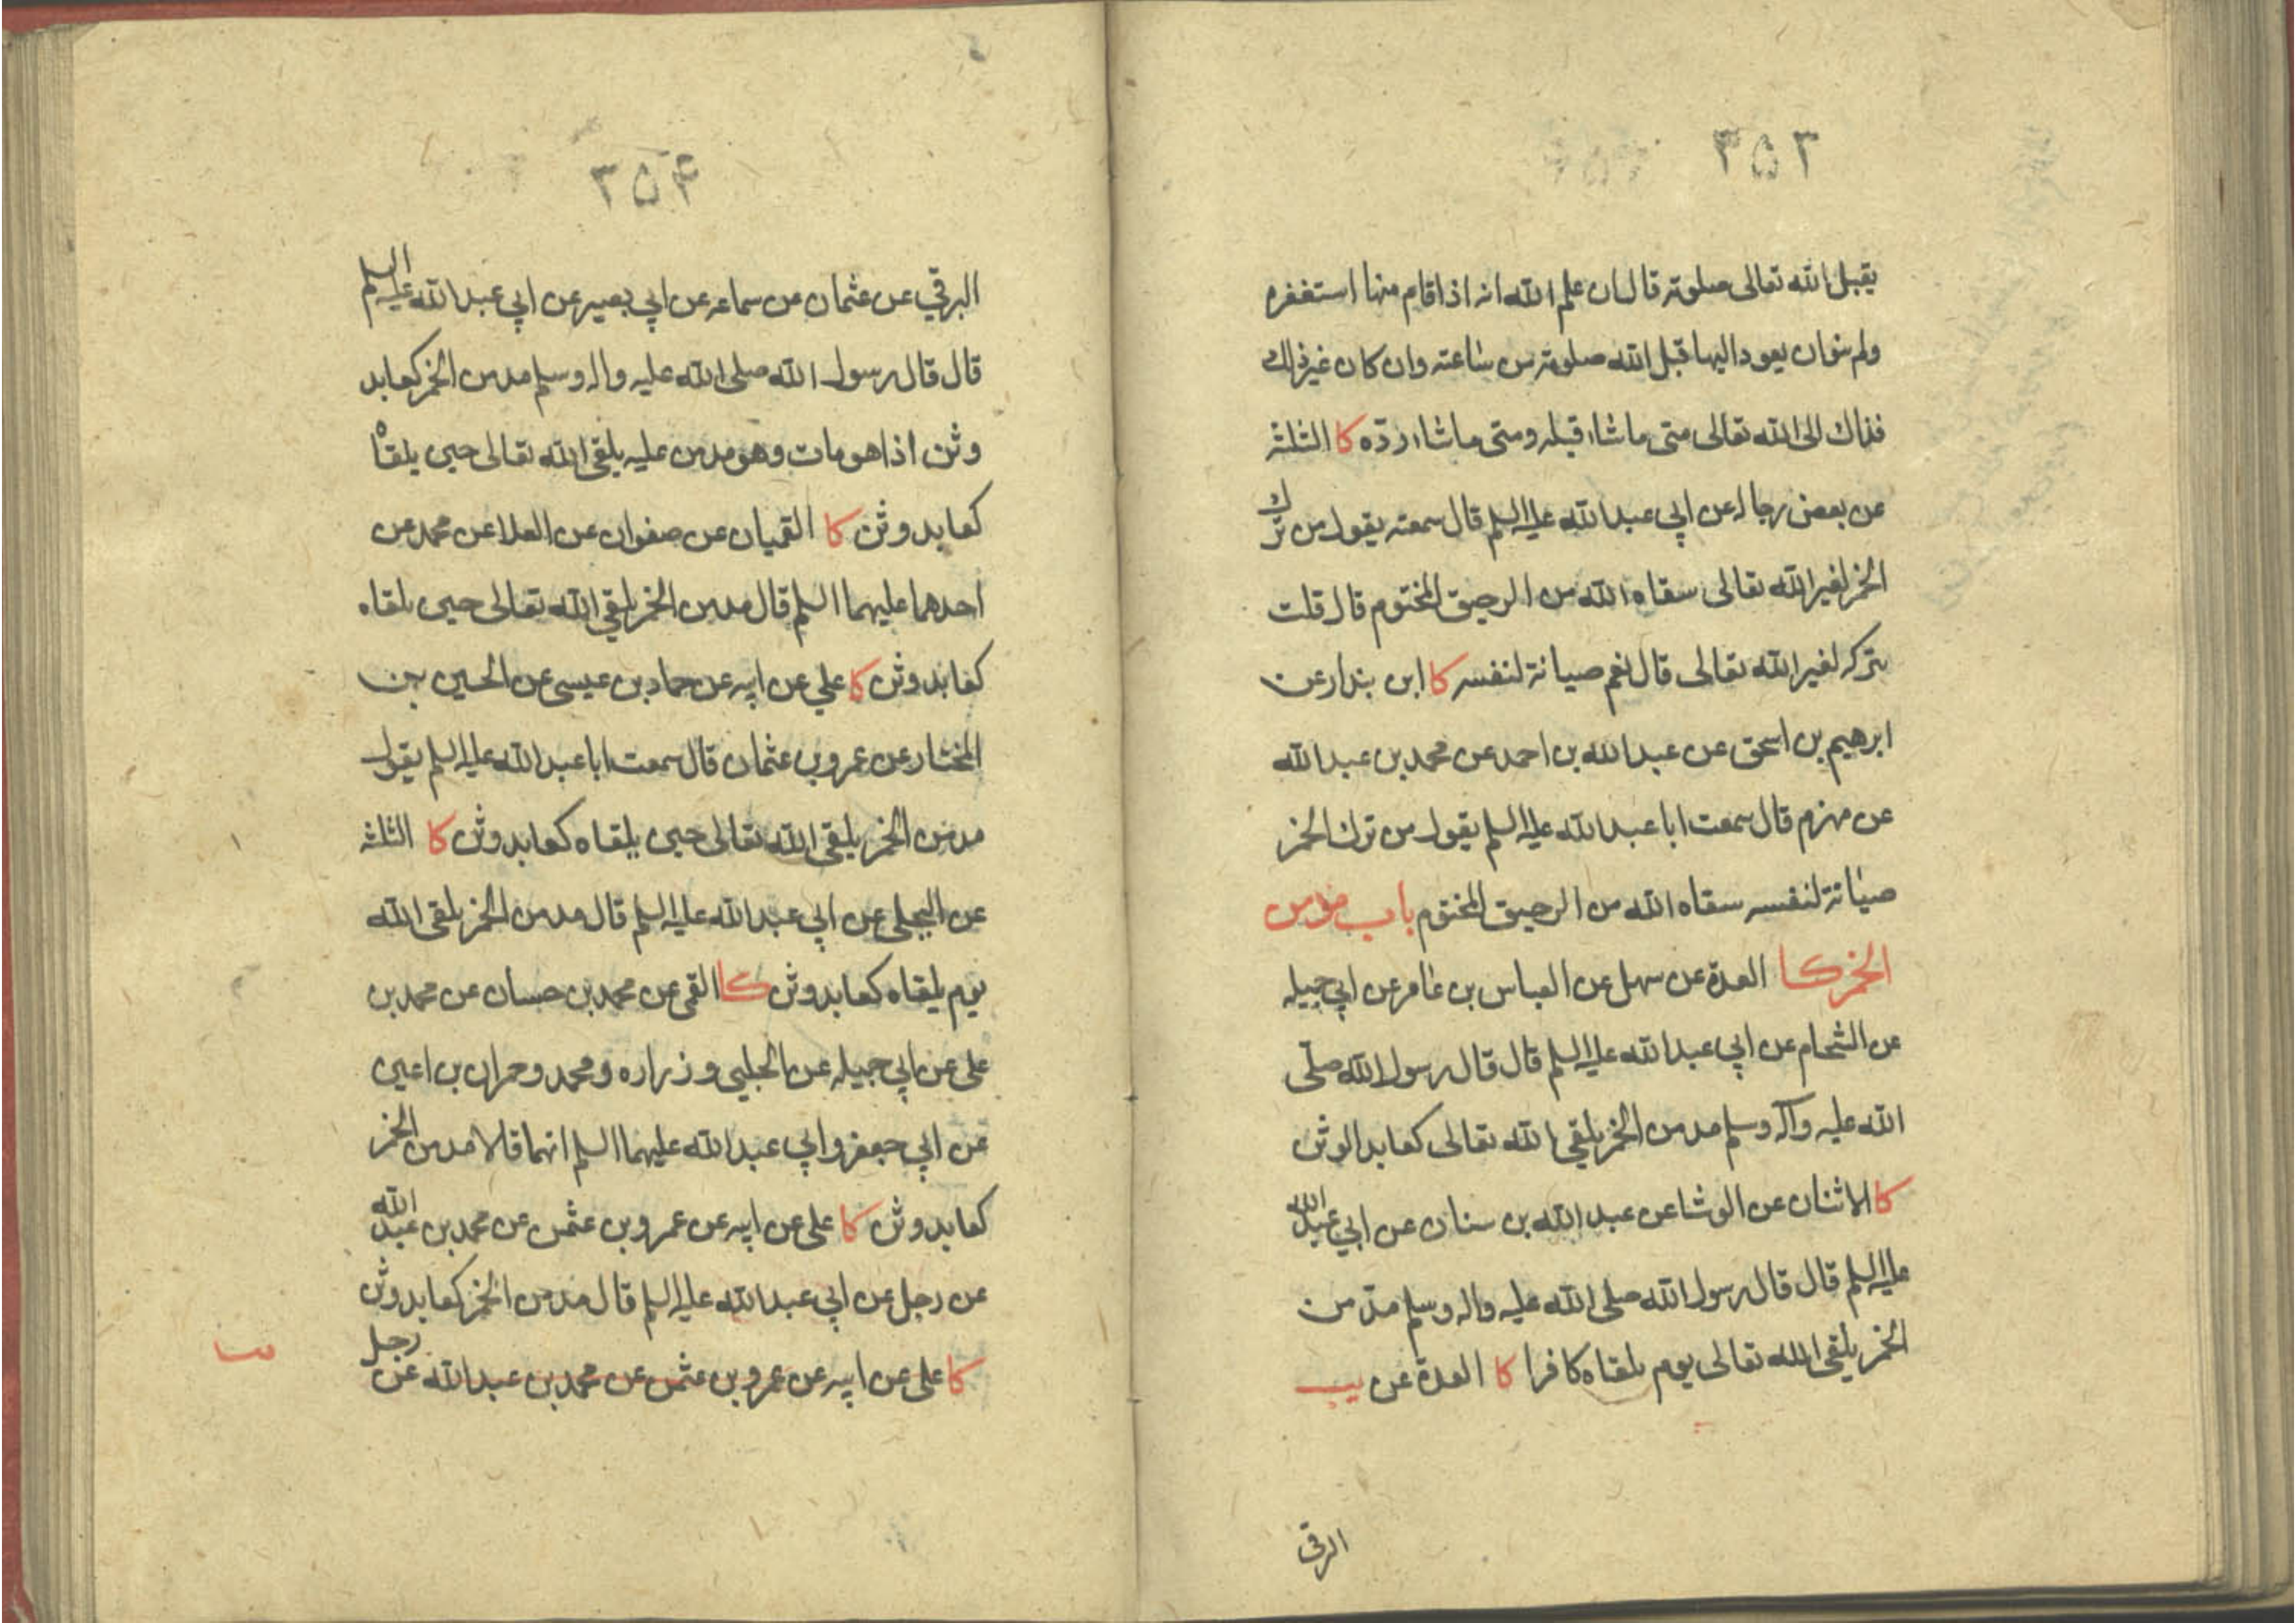 ٣٥٣
يقبل الله تعالى صلوته قال ان علم الله انه اذا قام منها استغفره
ولم ينو ان يعود اليها قبل الله صلوته من ساعته وان كان غير ذلك
فذاك الى الله تعالى متى ما شاء قبله ومتى ما شاء ردّه كا الثلثة
عن بعض رجاله عن ابي عبد الله عليه السلم قال سمعته يقول من ترك
الخمر لغير الله تعالى سقاه الله من الرحيق المختوم قال قلت
يتركه لغير الله تعالى قال نعم صيانة لنفسه كا ابن بندار عن
ابرهيم بن اسحق عن عبد الله بن احمد عن محمد بن عبد الله
عن مهزم قال سمعت ابا عبد الله عليه السلم يقول من ترك الخمر
صيانة لنفسه سقاه الله من الرحيق المختوم باب مدمن
الخمر كا العدة عن سهل عن العباس بن عامر عن ابي جميله
عن الشحام عن ابي عبد الله عليه السلم قال قال رسول الله صلّى
الله عليه وآله وسلم مدمن الخمر يلقي الله تعالى كعابد الوثن
كا الاثنان عن الوشا عن عبد الله بن سنان عن ابي عبد الله
عليه السلم قال قال رسول الله صلى الله عليه واله وسلم مدمن
الخمر يلقى الله تعالى يوم يلقاه كافرا كا العدة عن
البرقي
٣٥٤
البرقي عن عثمان عن سماعه عن ابي بصير عن ابي عبد الله عليه السلم
قال قال رسول الله صلى الله عليه واله وسلم مدمن الخمر كعابد
وثن اذا هو مات وهو مدمن عليه يلقى الله تعالى حين يلقاه
كعابد وثن كا القميان عن صفوان عن العلا عن محمد عن
احدهما عليهما السلم قال مدمن الخمر يلقي الله تعالى حين يلقاه
كعابد وثن كا علي عن ابيه عن حماد بن عيسى عن الحسين بن
المختار عن عمرو بن عثمان قال سمعت ابا عبد الله عليه السلم يقول
مدمن الخمر يلقى الله تعالى حين يلقاه كعابد وثن كا الثلثة
عن البجلي عن ابي عبد الله عليه السلم قال مدمن الخمر يلقى الله
يوم يلقاه كعابد وثن كا القمى عن محمد بن حسان عن محمد بن
على عن ابي جميله عن الحلبي وزراره ومحمد وحمران بن اعين
عن ابي جعفر وابي عبد الله عليهما السلم انهما قالا مدمن الخمر
كعابد وثن كا على عن ابيه عن عمرو بن عثمن عن محمد بن عبد الله
عن رجل عن ابي عبد الله عليه السلم قال مدمن الخمر كعابد وثن
كا على عن ابيه عن عمرو بن عثمن عن محمد بن عبد الله عن رجل